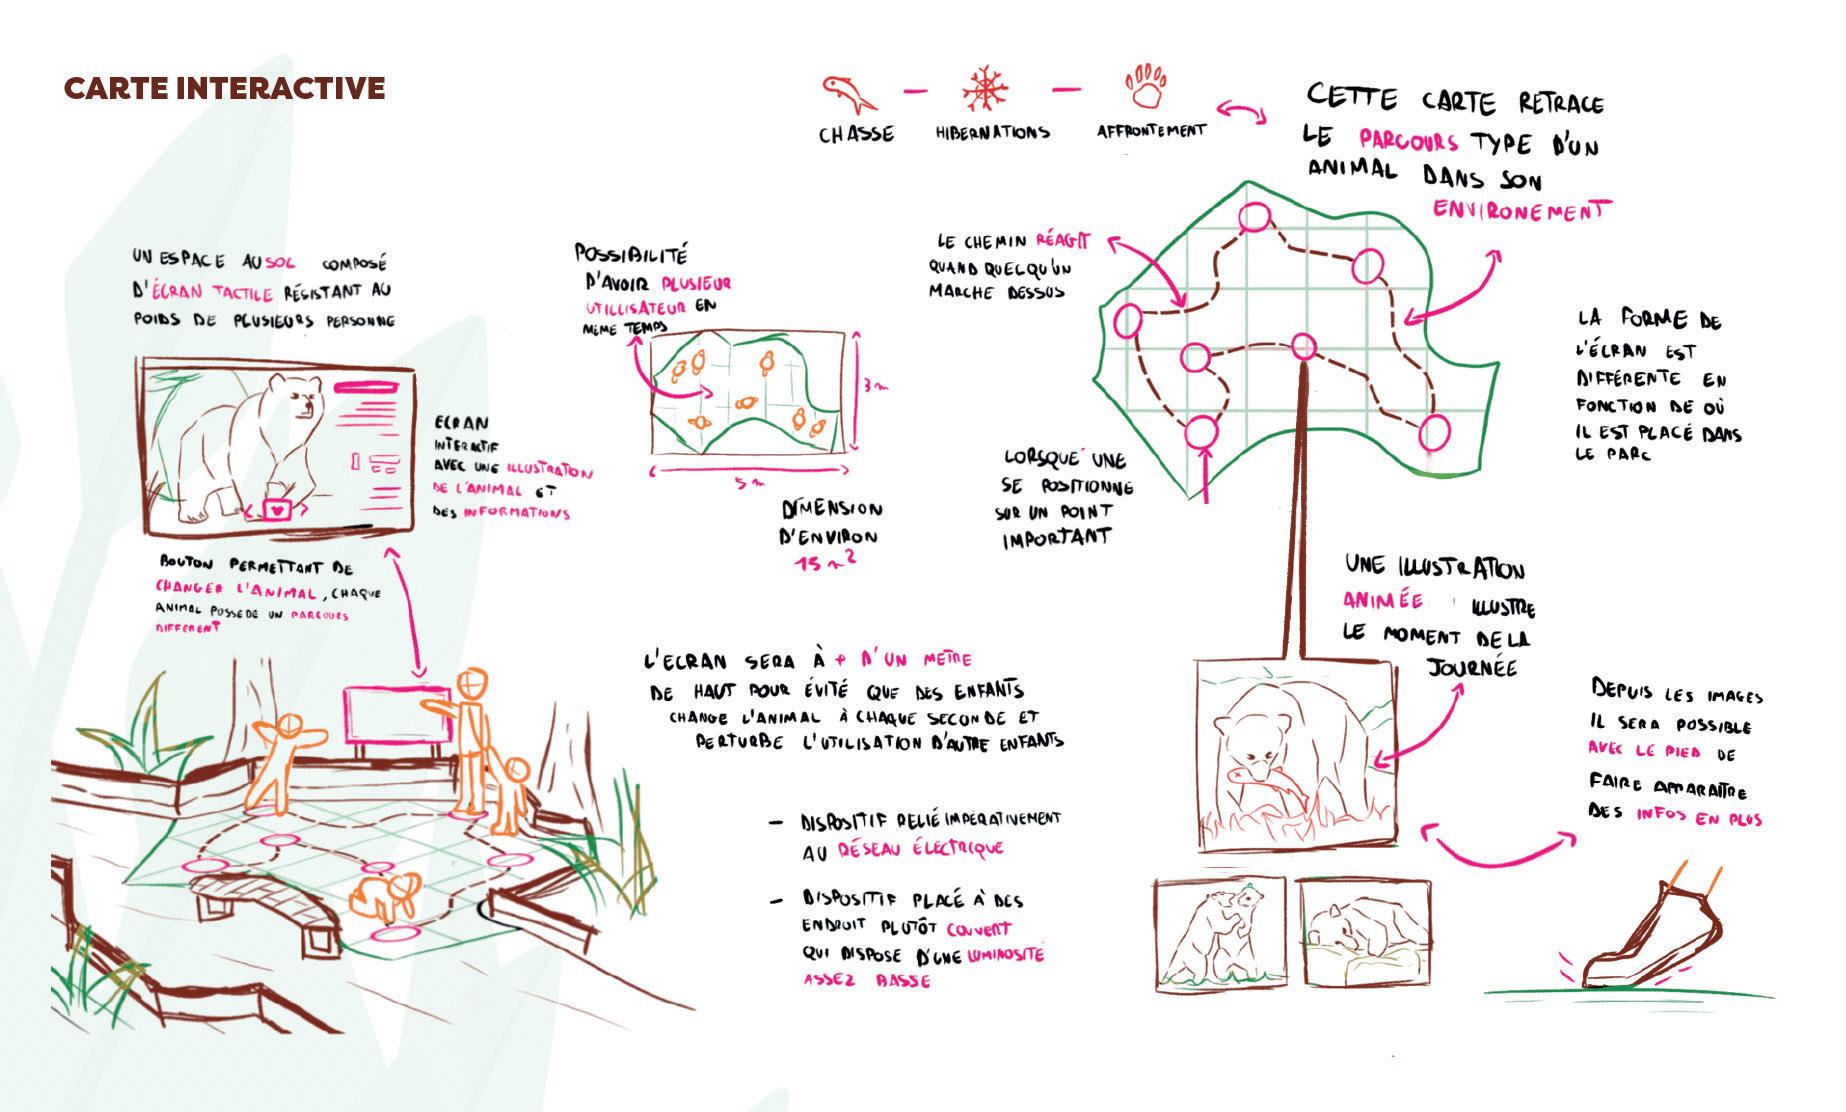 CARTE INTERACTIVE
CHASSE
HIBERNATIONS
AFFRONTEMENT
CETTE CARTE RETRACE
LE PARCOURS TYPE D'UN
ANIMAL DANS SON
ENVIRONEMENT
UN ESPACE AU SOL COMPOSÉ
D'ÉCRAN TACTILE RÉSISTANT AU
POIDS DE PLUSIEURS PERSONNE
ECRAN
INTERACTIF
AVEC UNE ILLUSTRATION
DE L'ANIMAL ET
DES INFORMATIONS
BOUTON PERMETTANT DE
CHANGER L'ANIMAL, CHAQUE
ANIMAL POSSEDE UN PARCOURS
DIFFERENT
POSSIBILITÉ
D'AVOIR PLUSIEUR
UTILLISATEUR EN
MÊME TEMPS
3 m
5 m
DIMENSION
D'ENVIRON
15 m²
LE CHEMIN RÉAGIT
QUAND QUELQU'UN
MARCHE DESSUS
LORSQUE UNE
SE POSITIONNE
SUR UN POINT
IMPORTANT
LA FORME DE
L'ÉCRAN EST
DIFFÉRENTE EN
FONCTION DE OÙ
IL EST PLACÉ DANS
LE PARC
UNE ILLUSTRATION
ANIMÉE ILLUSTRE
LE MOMENT DE LA
JOURNÉE
DEPUIS LES IMAGES
IL SERA POSSIBLE
AVEC LE PIED DE
FAIRE APPARAÎTRE
DES INFOS EN PLUS
L'ECRAN SERA À + D'UN METRE
DE HAUT POUR ÉVITÉ QUE DES ENFANTS
CHANGE L'ANIMAL À CHAQUE SECONDE ET
PERTURBE L'UTILISATION D'AUTRE ENFANTS
- DISPOSITIF RELIÉ IMPÉRATIVEMENT
AU RÉSEAU ÉLECTRIQUE
- DISPOSITIF PLACÉ À DES
ENDROIT PLUTÔT COUVERT
QUI DISPOSE D'UNE LUMINOSITÉ
ASSEZ BASSE